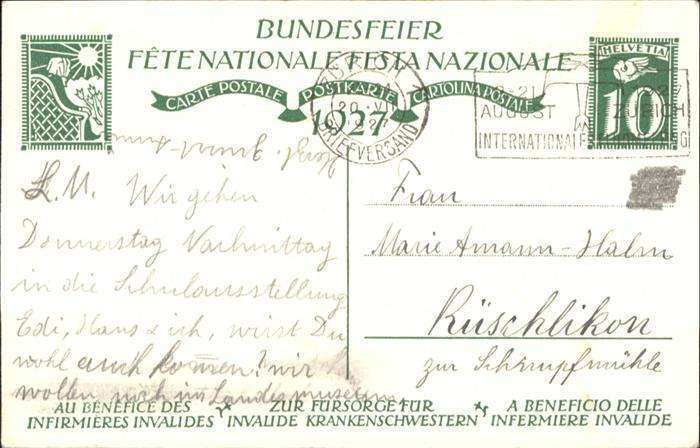 BUNDESFEIER
FÊTE NATIONALE FESTA NAZIONALE
CARTE POSTALE POSTKARTE CARTOLINA POSTALE
1927
HELVETIA
10
ZÜRICH
20. VII
1927
BRIEFVERSAND
-21
AUGUST
1927
ZÜRICH
INTERNATIONAL
L. M. Wir gehen
Donnerstag Nachmittag
in die Schulausstellung
Edi, Hans & ich, wirst Du
wohl auch kommen? wir
wollen noch ins Landesmuseum.
Frau
Marie Amann-Halm
Rüschlikon
zur Schrumpfmühle
AU BÉNÉFICE DES INFIRMIÈRES INVALIDES
ZUR FÜRSORGE FÜR INVALIDE KRANKENSCHWESTERN
A BENEFICIO DELLE INFERMIERE INVALIDE